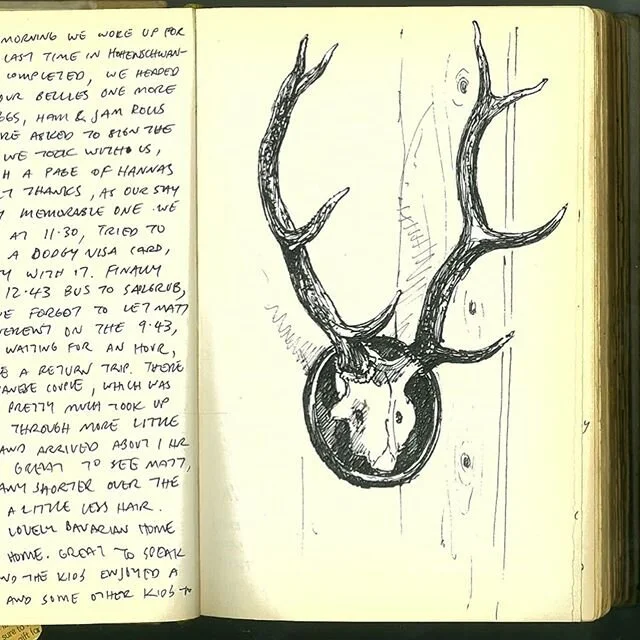 MORNING WE WOKE UP FOR
LAST TIME IN HOHENSCHWAN-
COMPLETED, WE HEADED
OUR BELLIES ONE MORE
EGGS, HAM & JAM ROLLS
RE ASKED TO SIGN THE
WE TOOK WITH US,
H A PAGE OF HANNAS
THANKS, AS OUR STAY
MEMORABLE ONE. WE
AT 11.30, TRIED TO
A DODGY VISA CARD,
WITH IT. FINALLY
12.43 BUS TO
WE FORGOT TO LET MATT
ERENT ON THE 9.43,
WAITING FOR AN HOUR,
E A RETURN TRIP. THERE
COUPLE, WHICH WAS
PRETTY MUCH TOOK UP
THROUGH MORE LITTLE
AND ARRIVED ABOUT 1 HR
GREAT TO SEE MATT,
ANY SHORTER OVER THE
A LITTLE LESS HAIR.
LOVELY BAVARIAN HOME
HOME. GREAT TO SPEAK
ND THE KIDS ENJOYED A
AND SOME OTHER KIDS TO
sure to